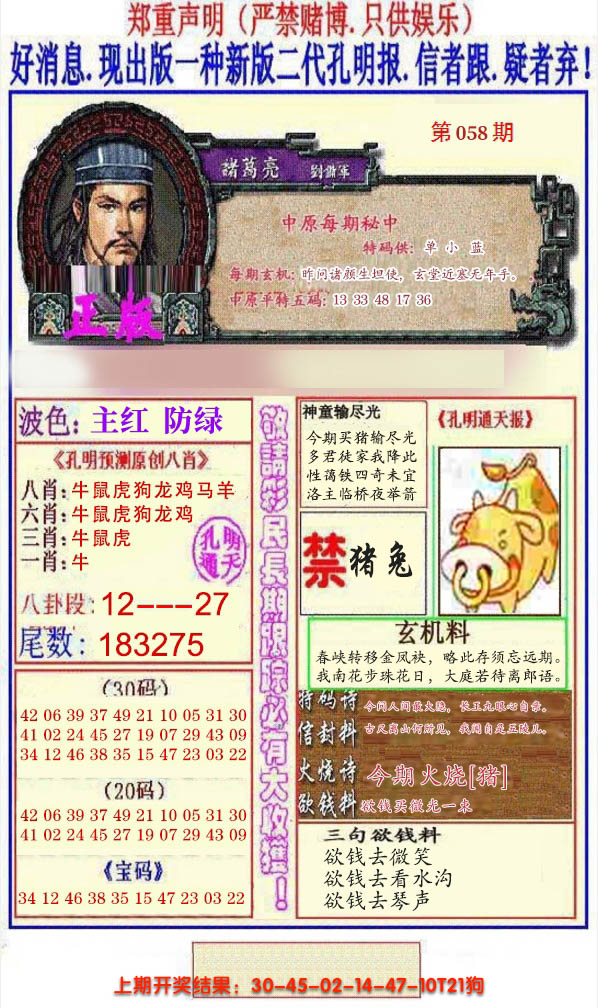 郑重声明（严禁赌博.只供娱乐）
好消息.现出版一种新版二代孔明报.信者跟.疑者弃!
第058期
諸葛亮
中原每期秘中
特码供：单 小 蓝
每期玄机：昨问诸颜生坦使，玄堂近塞无年手。
中原平特五码：13 33 48 17 36
正版
波色：主红 防绿
《孔明预测原创八肖》
八肖：牛鼠虎狗龙鸡马羊
六肖：牛鼠虎狗龙鸡
三肖：牛鼠虎
一肖：牛
孔明
通天
八卦段：12---27
尾数：183275
（30码）
42 06 39 37 49 21 10 05 31 30
41 02 24 45 27 19 07 29 43 09
34 12 46 38 35 15 47 23 03 22
（20码）
42 06 39 37 49 21 10 05 31 30
41 02 24 45 27 19 07 29 43 09
《宝码》
34 12 46 38 35 15 47 23 03 22
敬請彩民長期跟踪必有大收獲！
神童输尽光
今期买猪输尽光
多君徒家我降此
性蔼铁四奇未宜
洛主临桥夜举箭
《孔明通天报》
禁 猪兔
玄机料
春峡转移金凤袂，略此存须忘远期。
我南花步珠花日，大庭若待离郎语。
特码诗
信封料
今问人间最火隐，长王九眼心自亲。
古尺离山何所见，我闻自是五陵儿。
火烧诗
今期火烧[猪]
欲钱料
欲钱买微光一束
三句欲钱料
欲钱去微笑
欲钱去看水沟
欲钱去琴声
上期开奖结果：30-45-02-14-47-10T21狗